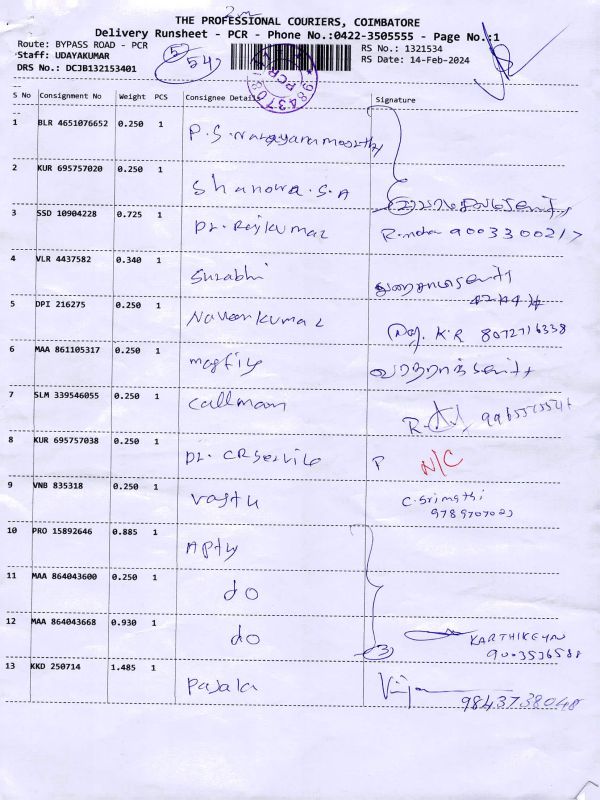 THE PROFESSIONAL COURIERS, COIMBATORE
Delivery Runsheet - PCR - Phone No.:0422-3505555 - Page No.:1
Route: BYPASS ROAD - PCR
RS No.: 1321534
Staff: UDAYAKUMAR
RS Date: 14-Feb-2024
DRS No.: DCJB132153401
54
S No Consignment No Weight PCS Consignee Details Signature
1 BLR 4651076652 0.250 1 P.S. Narayanamoorthy
2 KUR 695757020 0.250 1 Shanowa.S.A
3 SSD 10904228 0.725 1 Dr. Rajkumar 9003300217
4 VLR 4437582 0.340 1 Surabhi
5 DPI 216275 0.250 1 Naveenkumar K.R 8072716338
6 MAA 861105317 0.250 1
7 SLM 339546055 0.250 1 Callmam
8 KUR 695757038 0.250 1 Dr. CR Service P N/C
9 VNB 835318 0.250 1 Vastu C. Srimathi
10 PRO 15892646 0.885 1 Apty
11 MAA 864043600 0.250 1 do
12 MAA 864043668 0.930 1 do 3 KARTHIKEYN
9003536588
13 KKD 250714 1.485 1 Pajala
9843738048